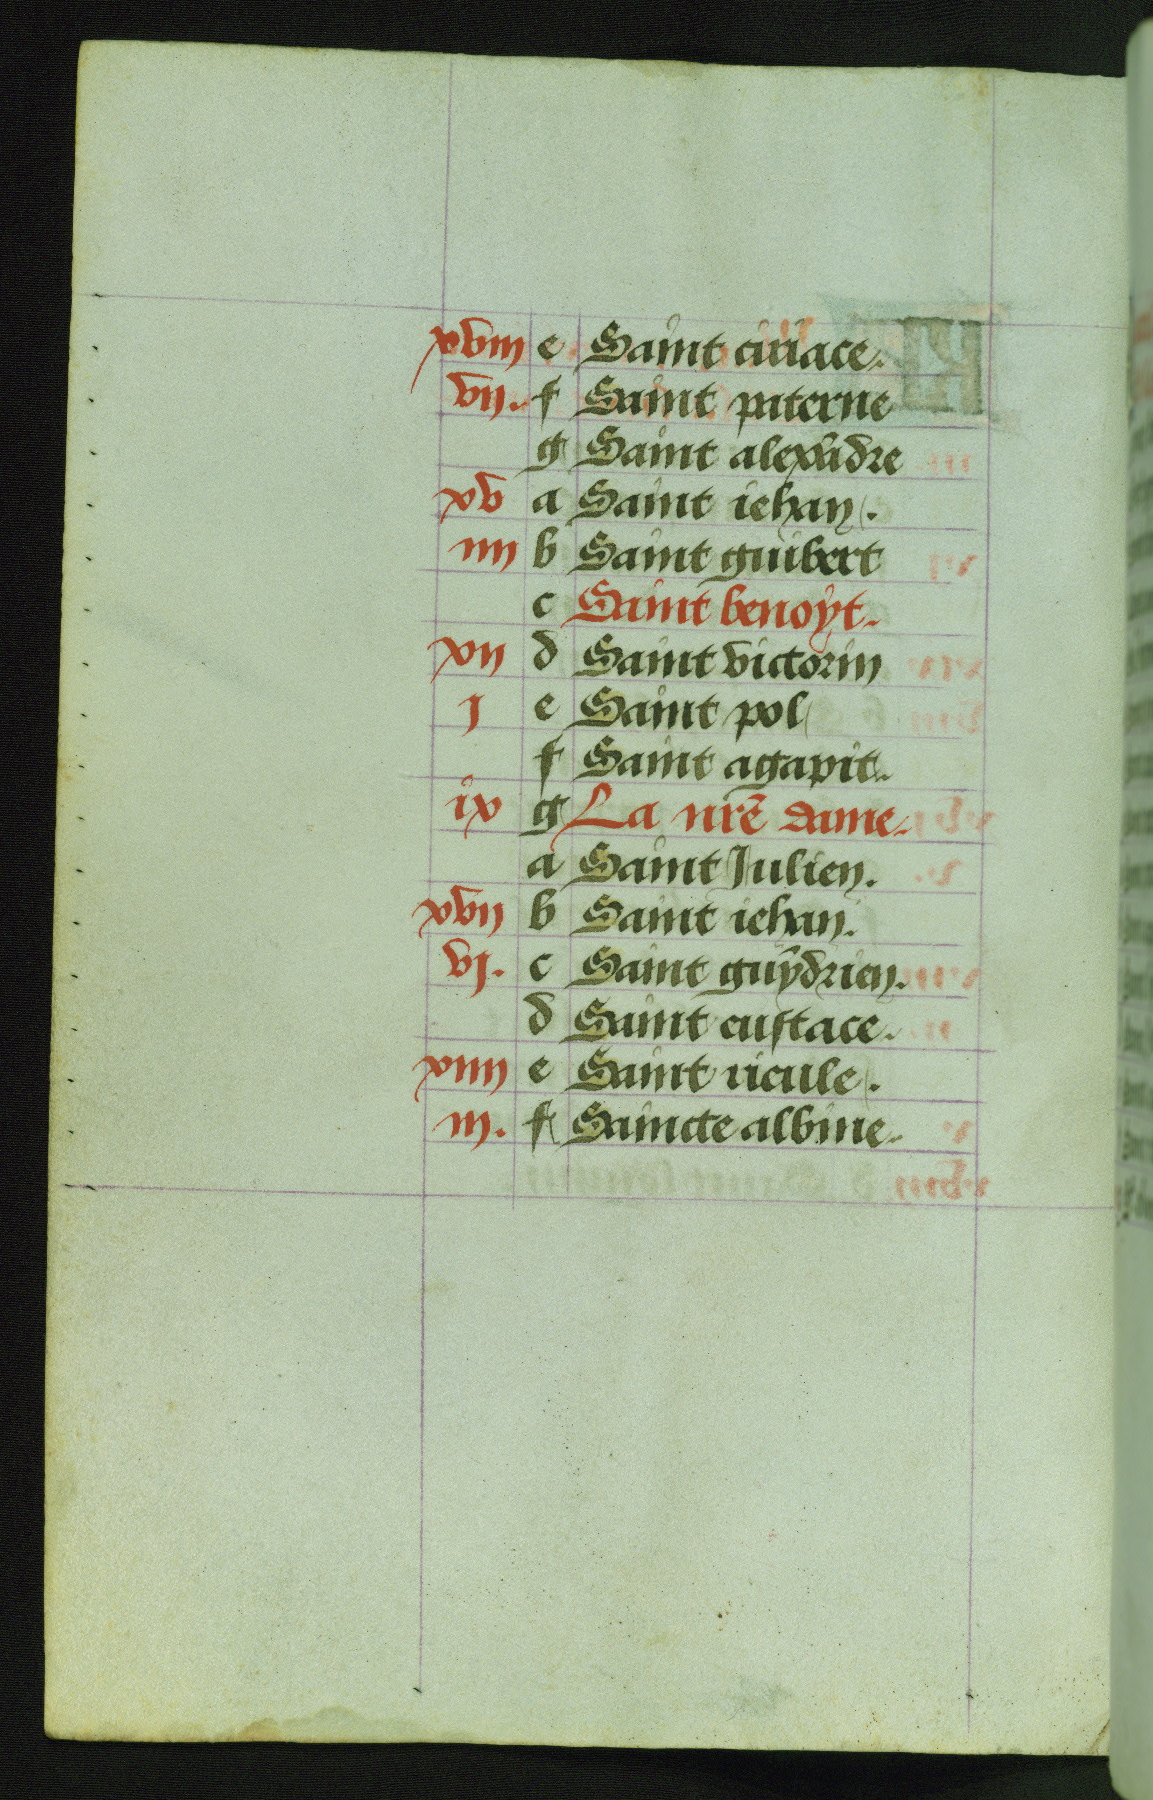 xviii e Saint ciriace.
vii. f Saint paterne
g Saint alexãdre
xv a Saint iehan.
iiii b Saint guibert
c Saint benoyt.
xii d Saint victorin
j e Saint pol
f Saint agapit.
ix g La nrẽ dame.
a Saint Julien.
xvii b Saint iehan.
vj. c Saint guydrien.
d Saint eustace.
xiiii e Saint ricule.
iii. f Saincte albine.